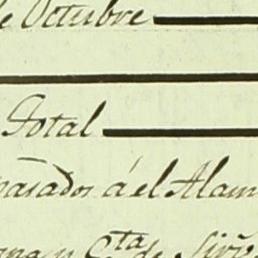 de Octubre
Total
pasados á el Alam
Cta de